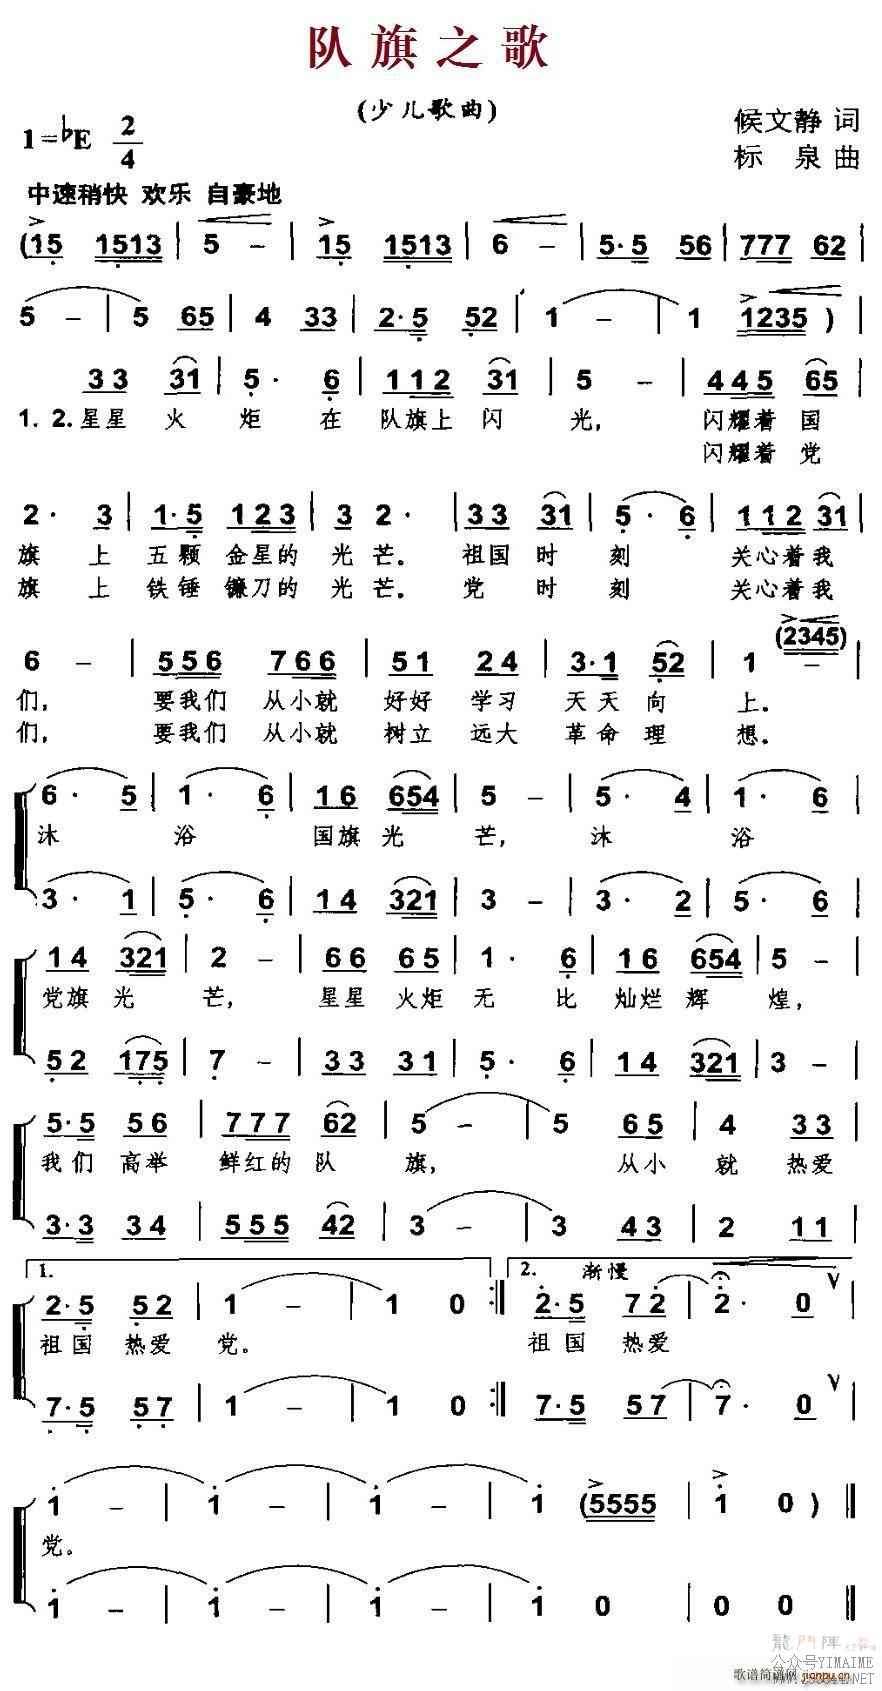 队旗之歌
(少儿歌曲)
1=♭E 2/4
候文静 词
标 泉 曲
中速稍快 欢乐 自豪地
(15 1513 | 5 – | 15 1513 | 6 – | 5·5 56 | 777 62 |
5 – | 5 65 | 4 33 | 2·5 52 | 1 – | 1 1235 ) |
33 31 | 5· 6 | 112 31 | 5 – | 445 65 |
1. 2. 星星 火 炬 在 队旗上 闪 光, 闪耀着 国
闪耀着 党
2· 3 | 1·5 123 | 3 2· | 33 31 | 5· 6 | 112 31 |
旗 上 五颗 金星的 光 芒。 祖国 时 刻 关心着 我
旗 上 铁锤 镰刀的 光 芒。 党 时 刻 关心着 我
(2345)
6 – | 556 766 | 51 24 | 3·1 52 | 1 – |
们, 要我们 从小就 好好 学习 天天 向 上。
们, 要我们 从小就 树立 远大 革命 理 想。
6· 5 | 1· 6 | 16 654 | 5 – | 5· 4 | 1· 6 |
沐 浴 国旗 光 芒, 沐 浴
3· 1 | 5· 6 | 14 321 | 3 – | 3· 2 | 5· 6 |
14 321 | 2 – | 66 65 | 1· 6 | 16 654 | 5 – |
党旗 光 芒, 星星 火炬 无 比 灿烂 辉 煌,
52 175 | 7 – | 33 31 | 5· 6 | 14 321 | 3 – |
5·5 56 | 777 62 | 5 – | 5 65 | 4 33 |
我们 高举 鲜红的 队 旗, 从小 就 热爱
3·3 34 | 555 42 | 3 – | 3 43 | 2 11 |
1. 2. 渐慢
2·5 52 | 1 – | 1 0 :‖ 2·5 72 | 2· 0 |
祖国 热爱 党。 祖国 热爱
7·5 57 | 1 – | 1 0 :‖ 7·5 57 | 7· 0 |
1 – | 1 – | 1 – | 1 (5555 | 1 0 ) ‖
党。
1 – | 1 – | 1 – | 1 0 | 0 0 ‖
龍門陣
公众号YIMAIME
歌谱简谱网 jianpu.cn